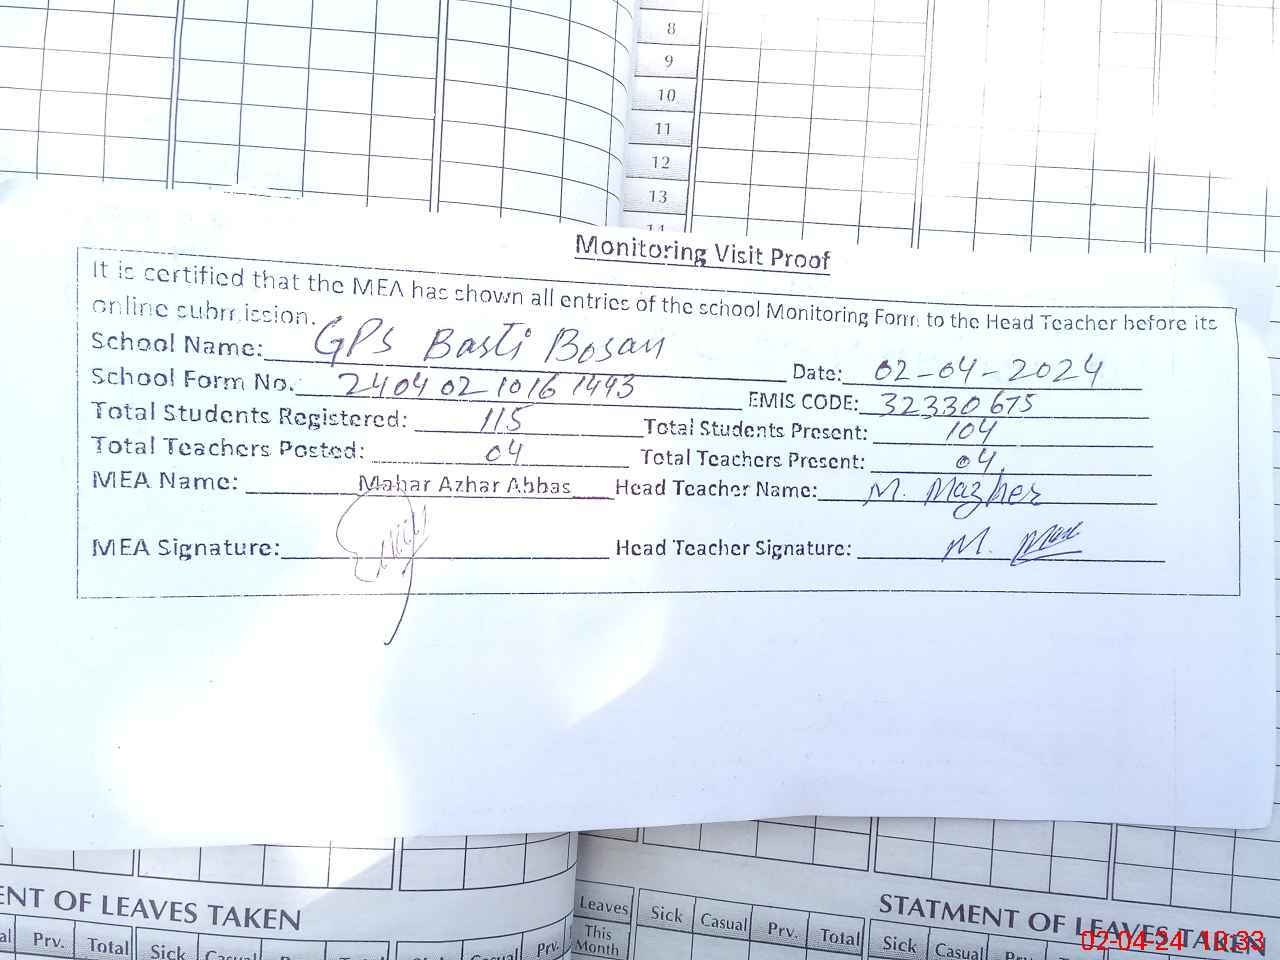 8
9
10
11
12
13
Monitoring Visit Proof
It is certified that the MEA has shown all entries of the school Monitoring Form to the Head Teacher before its
online submission.
School Name: GPS Basti Bosan
Date: 02-04-2024
School Form No. 240402-1016 1493
EMIS CODE: 32330675
Total Students Registered: 115
Total Students Present: 104
Total Teachers Posted: 04
Total Teachers Present: 04
MEA Name: Mahar Azhar Abbas
Head Teacher Name: M. Mazher
MEA Signature:
Head Teacher Signature: M.
ENT OF LEAVES TAKEN
Prv. Total Sick Prv.
STATMENT OF LEAVES TAKEN
Leaves This Month Sick Casual Prv. Total Sick Casual
02-04-24 10:33